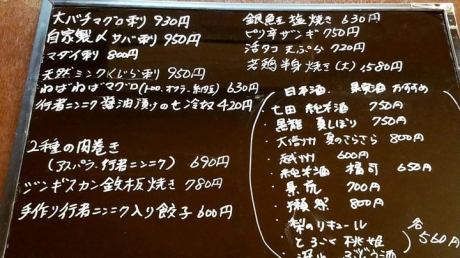 大バチマグロ刺り 930円
自家製〆サバ刺 950円
マダイ刺 800円
天然ミンクくじら刺 950円
ねばねばマグロ(トロロ、オクラ、納豆) 630円
行者ニンニク醤油漬けのせ冷奴 420円
2種の肉巻き
(アスパラ、行者ニンニク) 690円
ジンギスカン鉄板焼き 780円
手作り行者ニンニク入り餃子 600円
銀鮭塩焼き 630円
ピリ辛ザンギ 750円
活タコ天ぷら 720円
若鶏半身焼き(大) 1580円
日本酒 果実酒 おすすめ
・七田 純米酒 750円
・黒龍 夏しぼり 750円
・大信州 夏のさらさら 800円
・越州 600円
・純米酒 楯司 650円
・景虎 700円
・獺祭 800円
・梨のリキュール
・とろこく桃姫
各560円